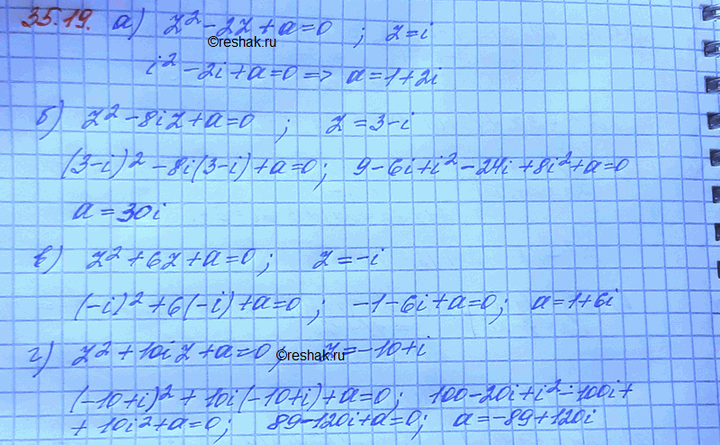 35.19. а) z² - 2z + a = 0 ; z = i
©reshak.ru
i² - 2i + a = 0 => a = 1 + 2i
б) z² - 8iz + a = 0 ; z = 3 - i
(3-i)² - 8i(3-i) + a = 0; 9 - 6i + i² - 24i + 8i² + a = 0
a = 30i
в) z² + 6z + a = 0; z = -i
(-i)² + 6(-i) + a = 0; -1 - 6i + a = 0; a = 1 + 6i
г) z² + 10iz + a = 0; z = -10 + i
©reshak.ru
(-10+i)² + 10i(-10+i) + a = 0; 100 - 20i + i² - 100i +
+ 10i² + a = 0; 89 - 120i + a = 0; a = -89 + 120i